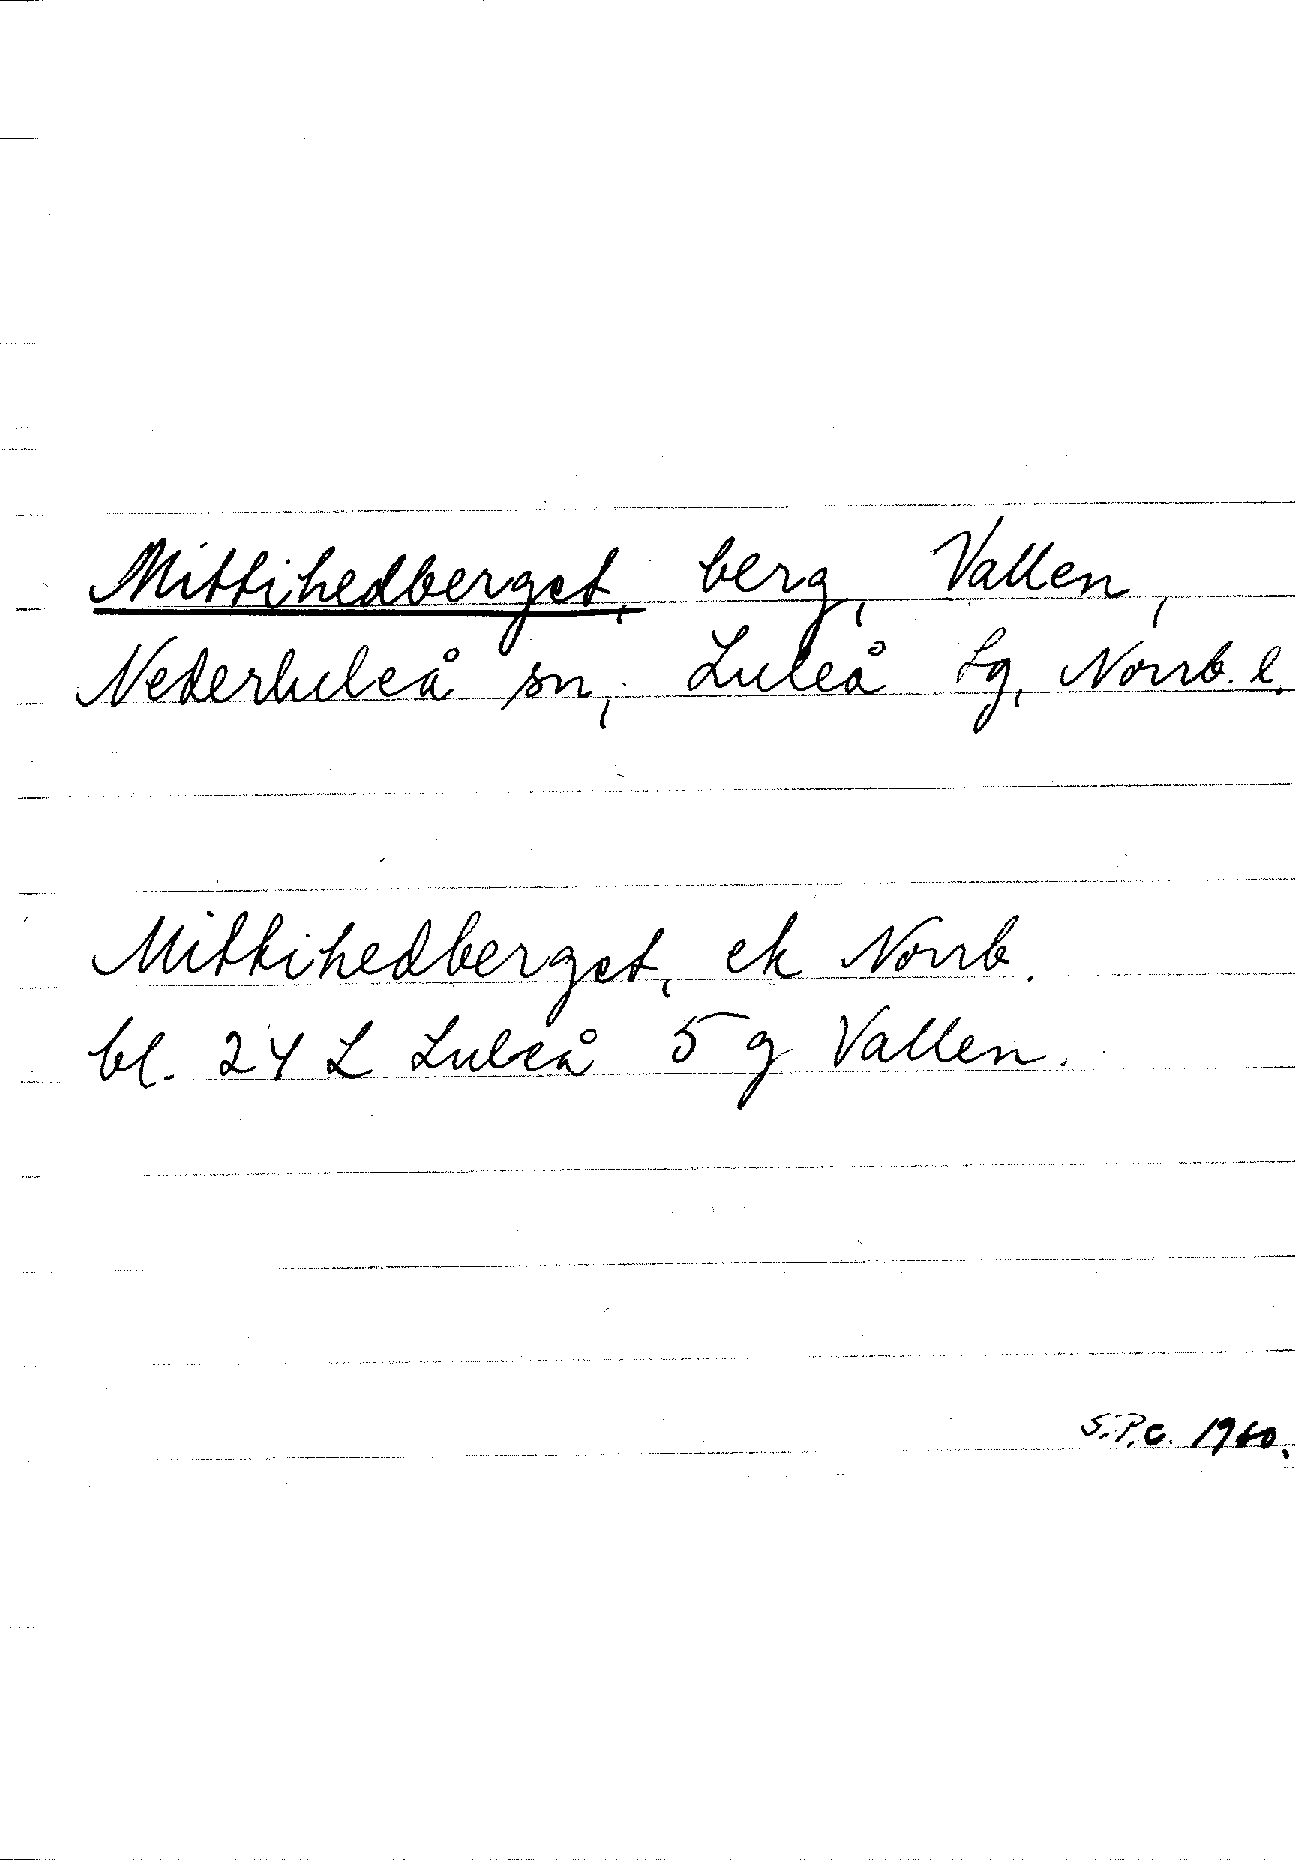 Mittihedberget, berg, Vallen,
Nederluleå sn, Luleå tg, Norrb. l.
Mittihedberget, ek Norrb.
bl. 24 L Luleå 5 g Vallen.
S.P.C. 1960.